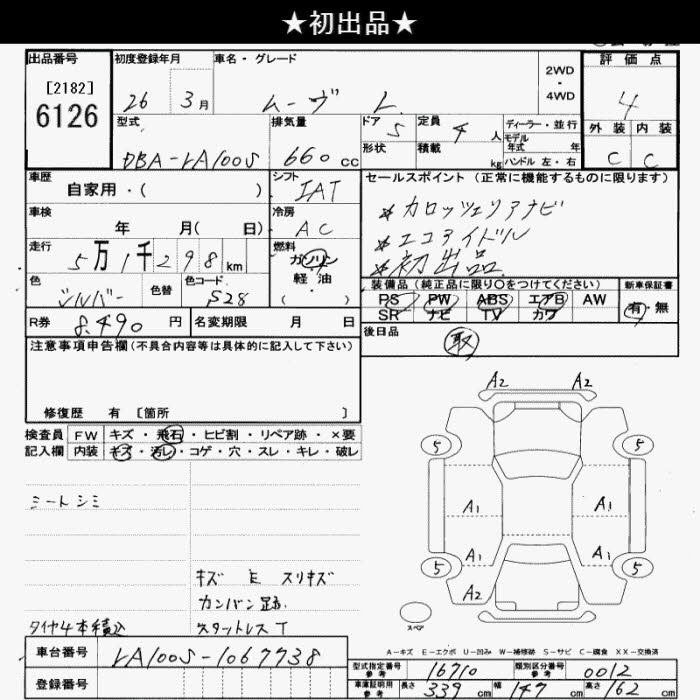 ★初出品★
出品番号 初度登録年月 車名・グレード 2WD・4WD 評価点
[2182]
6126
26 3月 ムーヴ L 4
型式 排気量 ドア 5 定員 4人 ディーラー・並行 外装 内装
形状 積載 kg モデル年式 年 ハンドル 左・右
DBA-LA100S 660cc C C
車歴 シフト セールスポイント (正常に機能するものに限ります)
自家用・( ) IAT
※カロッツェリアナビ
車検 冷房
年 月(日) AC
※エコアイドル
走行 燃料
5万1千298km ガソリン 軽油 ・( )
※初出品
色 色替 色コード 装備品(純正品に限り○をつけてください) 新車保証書
シルバー S28 PS PW ABS エアB AW 有・無
R券 8,490円 名変期限 月 日 SR ナビ TV カワ
後日品
取
注意事項申告欄(不具合内容等は具体的に記入して下さい)
修復歴 有 [箇所 ]
検査員 FW キズ・飛石・ヒビ割・リペア跡・×要
記入欄 内装 キズ・汚レ・コゲ・穴・スレ・キレ・破レ
A2 A2
5 5
A1 A1
A1 A1
5 5
A2
シートシミ
キズ E スリキズ
カンバン跡
タイヤ4本積込 スタットレスT
スペア
A-キズ E-エクボ U-凹み W-補修跡 S-サビ C-腐食 XX-交換済
車台番号 LA100S-1067738
登録番号
型式指定番号 参考 16710 類別区分番号 参考 0012
車庫証明用 参考 長さ 339cm 幅 147cm 高さ 162cm